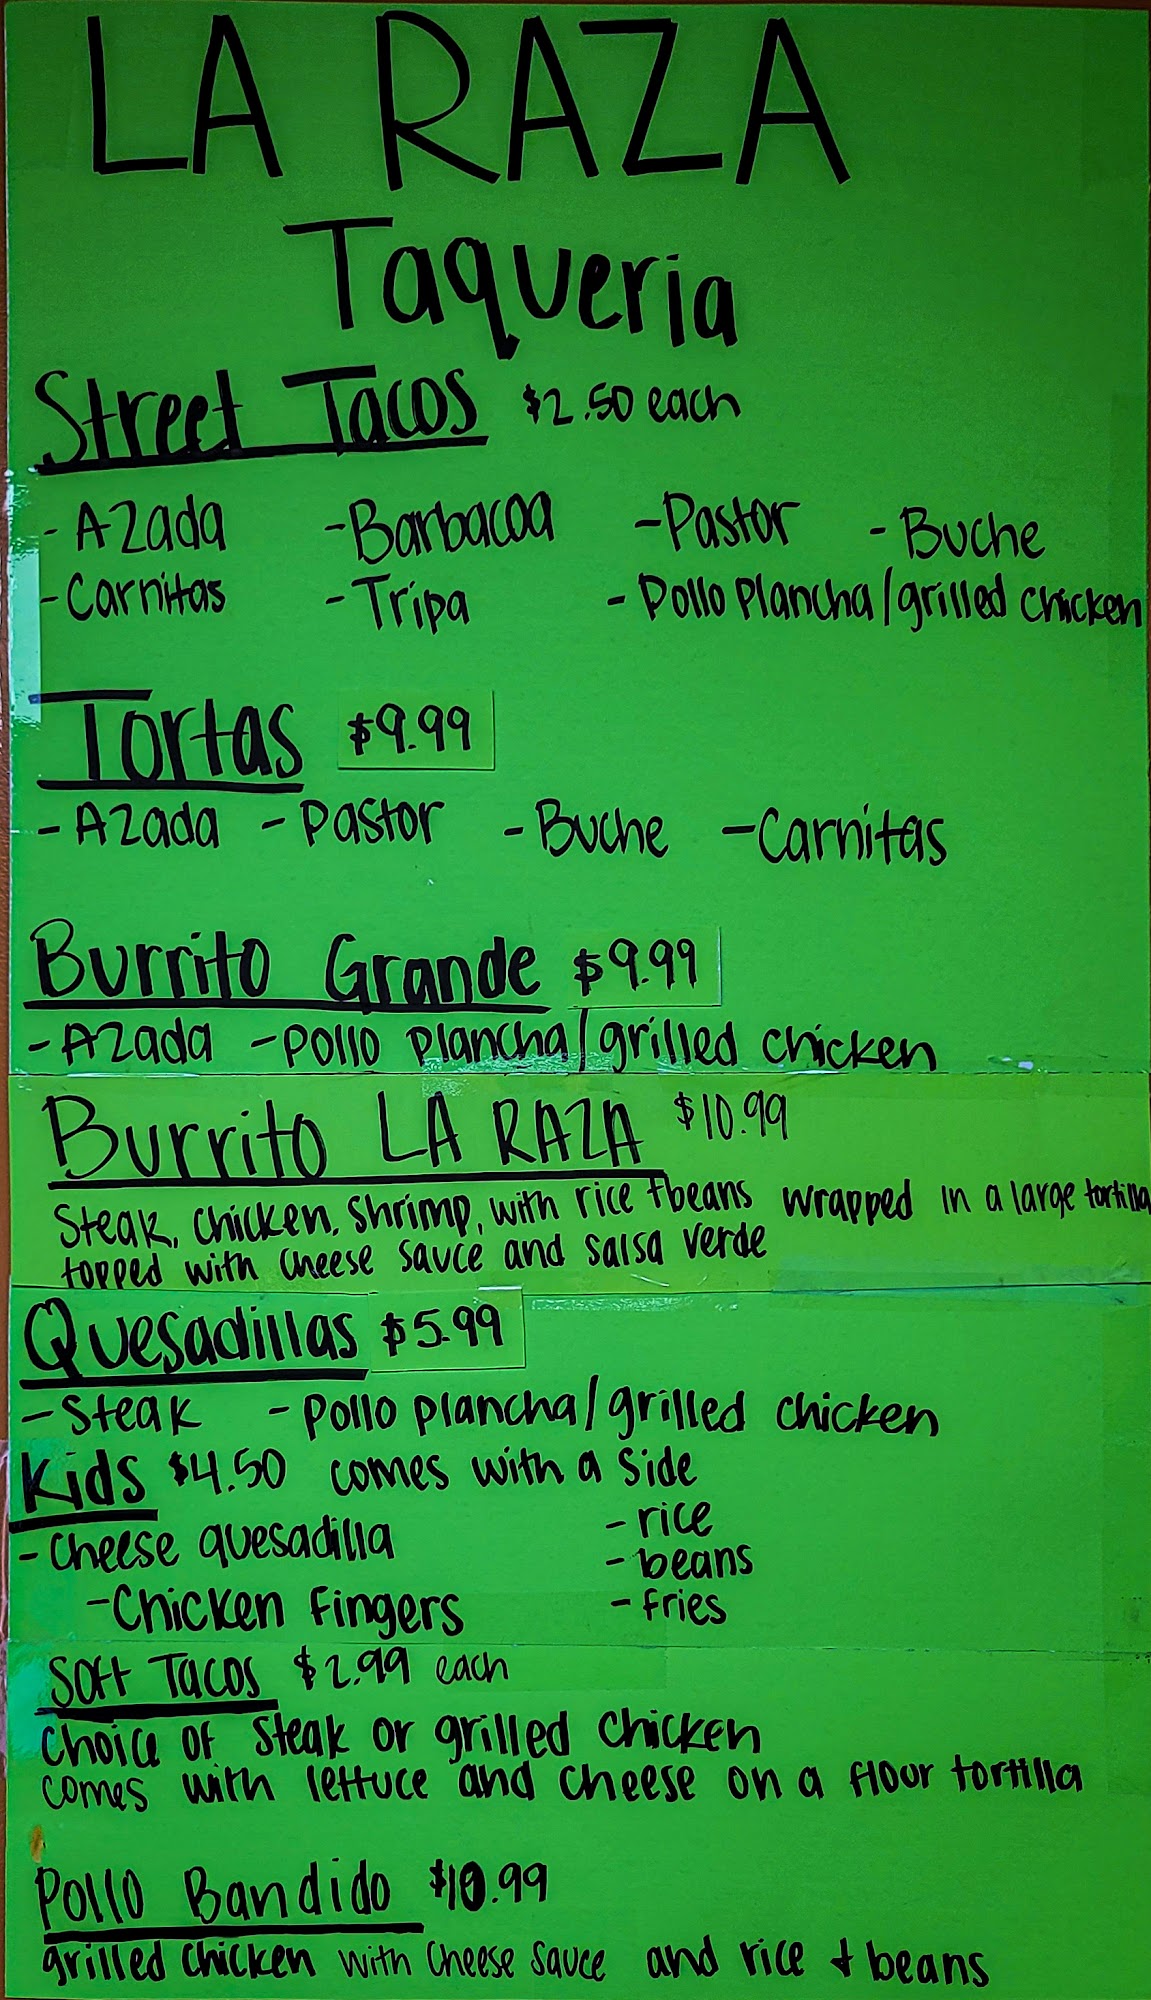 LA RAZA
Taqueria
Street Tacos $2.50 each
- Azada - Barbacoa - Pastor - Buche
- Carnitas - Tripa - Pollo Plancha/grilled chicken
Tortas $9.99
- Azada - Pastor - Buche - Carnitas
Burrito Grande $9.99
- Azada - Pollo plancha/grilled chicken
Burrito LA RAZA $10.99
Steak, chicken, shrimp, with rice + beans wrapped in a large tortilla
topped with cheese sauce and salsa verde
Quesadillas $5.99
- Steak - Pollo plancha/grilled chicken
Kids $4.50 comes with a side
- Cheese quesadilla - rice
- beans
- Chicken Fingers - fries
Soft Tacos $2.99 each
choice of steak or grilled chicken
comes with lettuce and cheese on a flour tortilla
Pollo Bandido $10.99
grilled chicken with cheese sauce and rice + beans